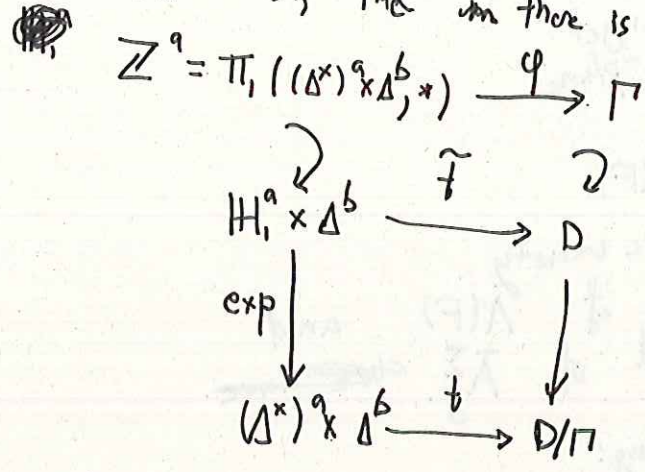 the in there is
Z^a = π₁((Δ^×)^a × Δ^b, *) φ Γ
ℍ₁^a × Δ^b f̃ D
exp
(Δ^×)^a × Δ^b f D/Γ